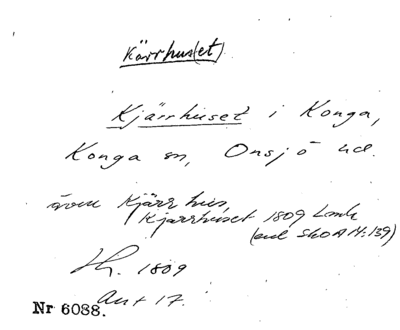 Kärrhus(et)
Kjärrhuset i Konga,
Konga sn, Onsjö hd.
även Kjärrhus,
Kjärrhuset 1809 Lmk
(enl SkOA M:139)
1809
Ant 17.
Nr 6088.